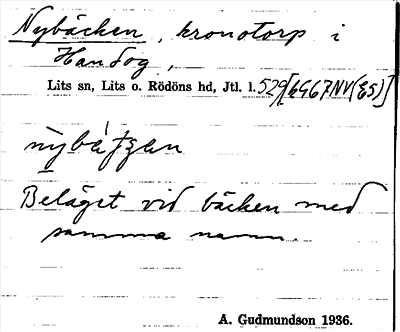 Nybäcken, kronotorp i
Handog,
Lits sn, Lits o. Rödöns hd, Jtl. l. 529
Beläget vid bäcken med
samma namn.
A. Gudmundson 1936.